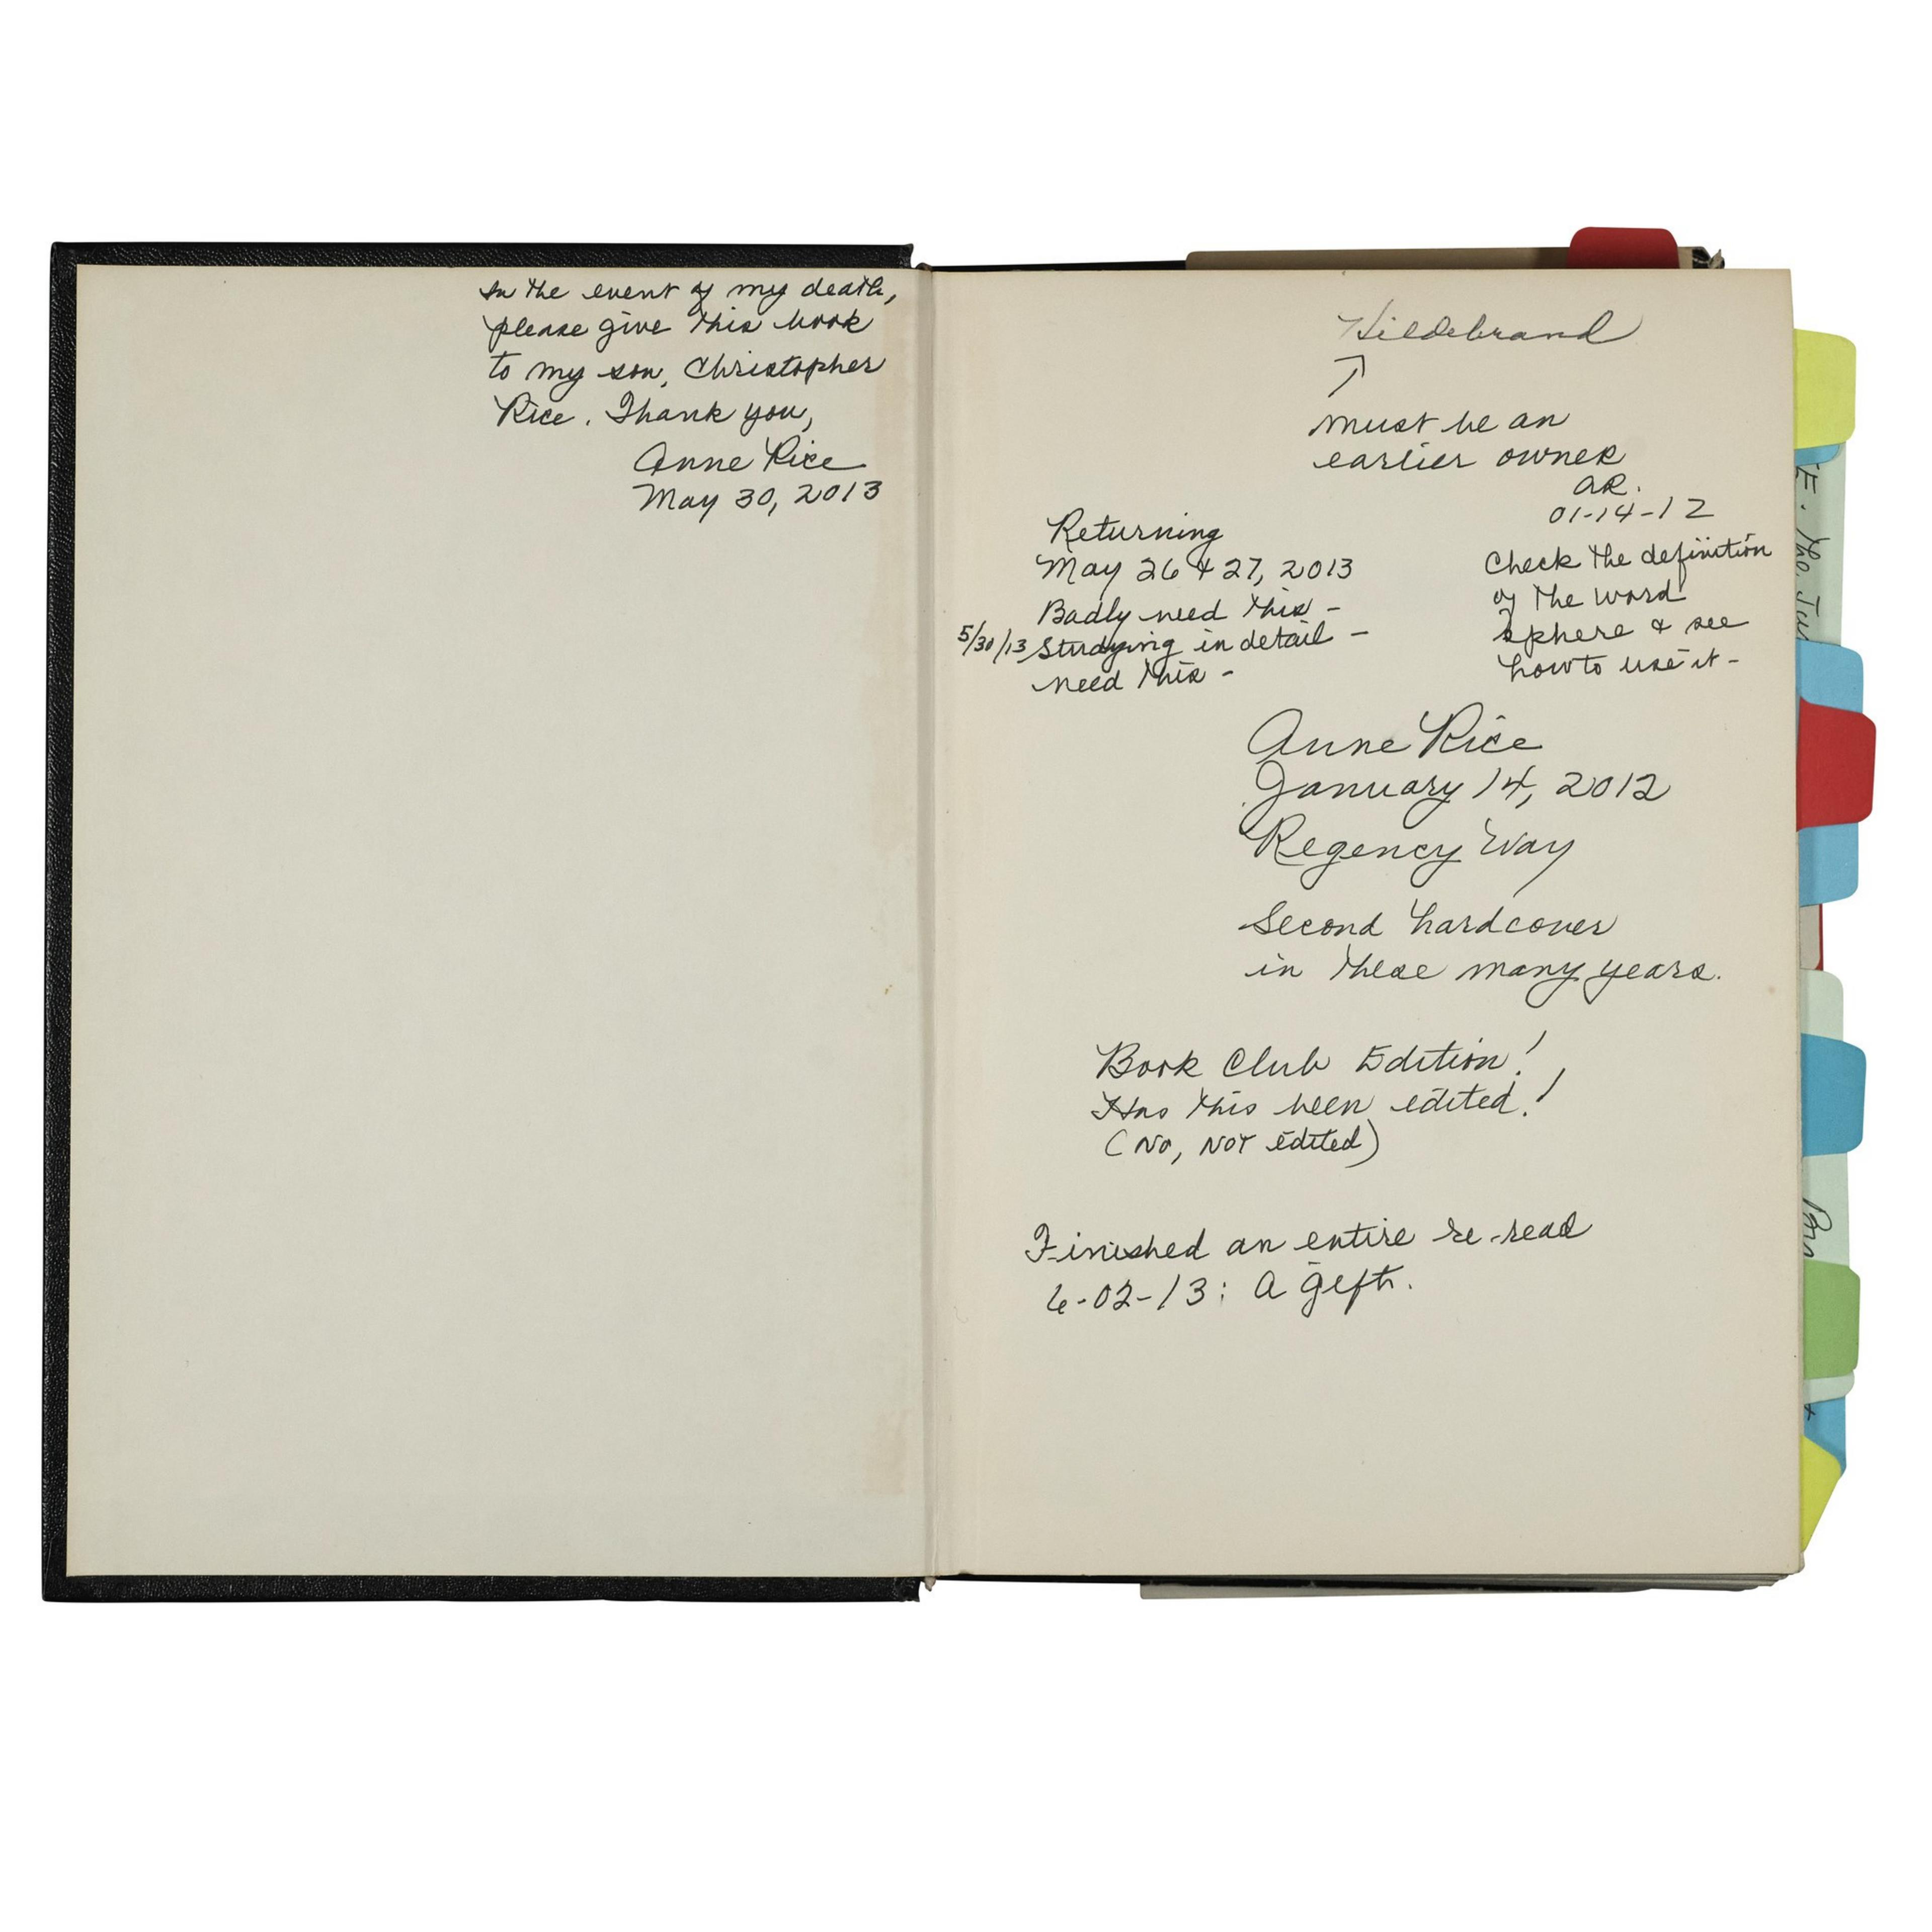 In the event of my death,
please give this book
to my son, Christopher
Rice. Thank you,
Anne Rice
May 30, 2013
Hildebrand
↗
must be an
earlier owner
AR.
01-14-12
Returning
May 26 & 27, 2013
Badly need this -
5/30/13 Studying in detail -
need this -
Check the definition
of the word
sphere & see
how to use it -
Anne Rice
January 14, 2012
Regency Way
Second hardcover
in these many years.
Book Club Edition!
Has this been edited!
(No, NOT edited)
Finished an entire re-read
6-02-13: A gift.